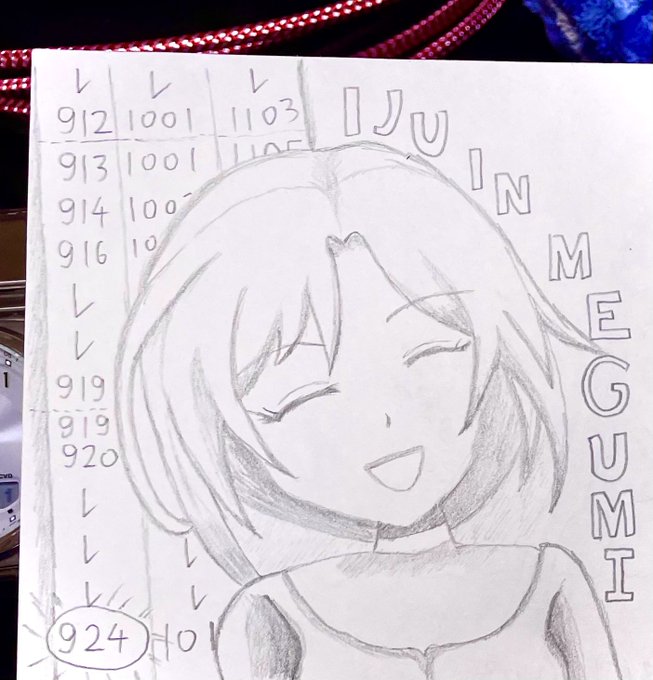 レ レ レ
912 1001 1103
913 1001
914
916
レ
レ
919
919
920
レ
レ レ
レ レ
924
IJUIN MEGUMI